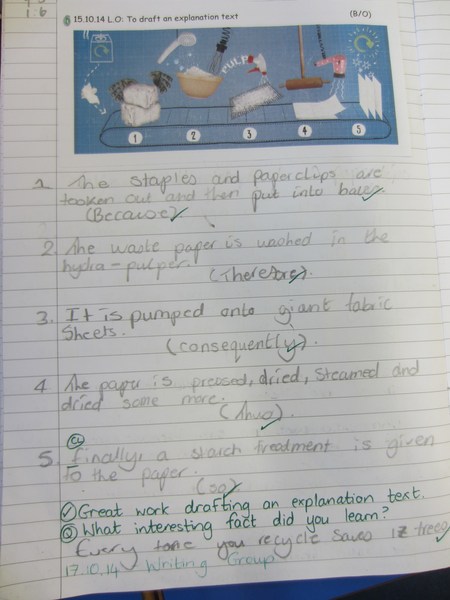 1:6
15.10.14 L.O: To draft an explanation text (B/O)
PULP
1 2 3 4 5
1 The staples and paperclips are
tooken out and then put into bales
(Because)
2. The waste paper is washed in the
hydra-pulper.
(Therefore).
3. It is pumped onto giant fabric
Sheets.
(consequently).
4 The paper is pressed, dried, steamed and
dried some more.
(Thus).
CL
5. finally a starch treatment is given
to the paper.
(so)
Great work drafting an explanation text.
Q What interesting fact did you learn?
Every tone you recycle saves 17 trees
17.10.14 Writing Group